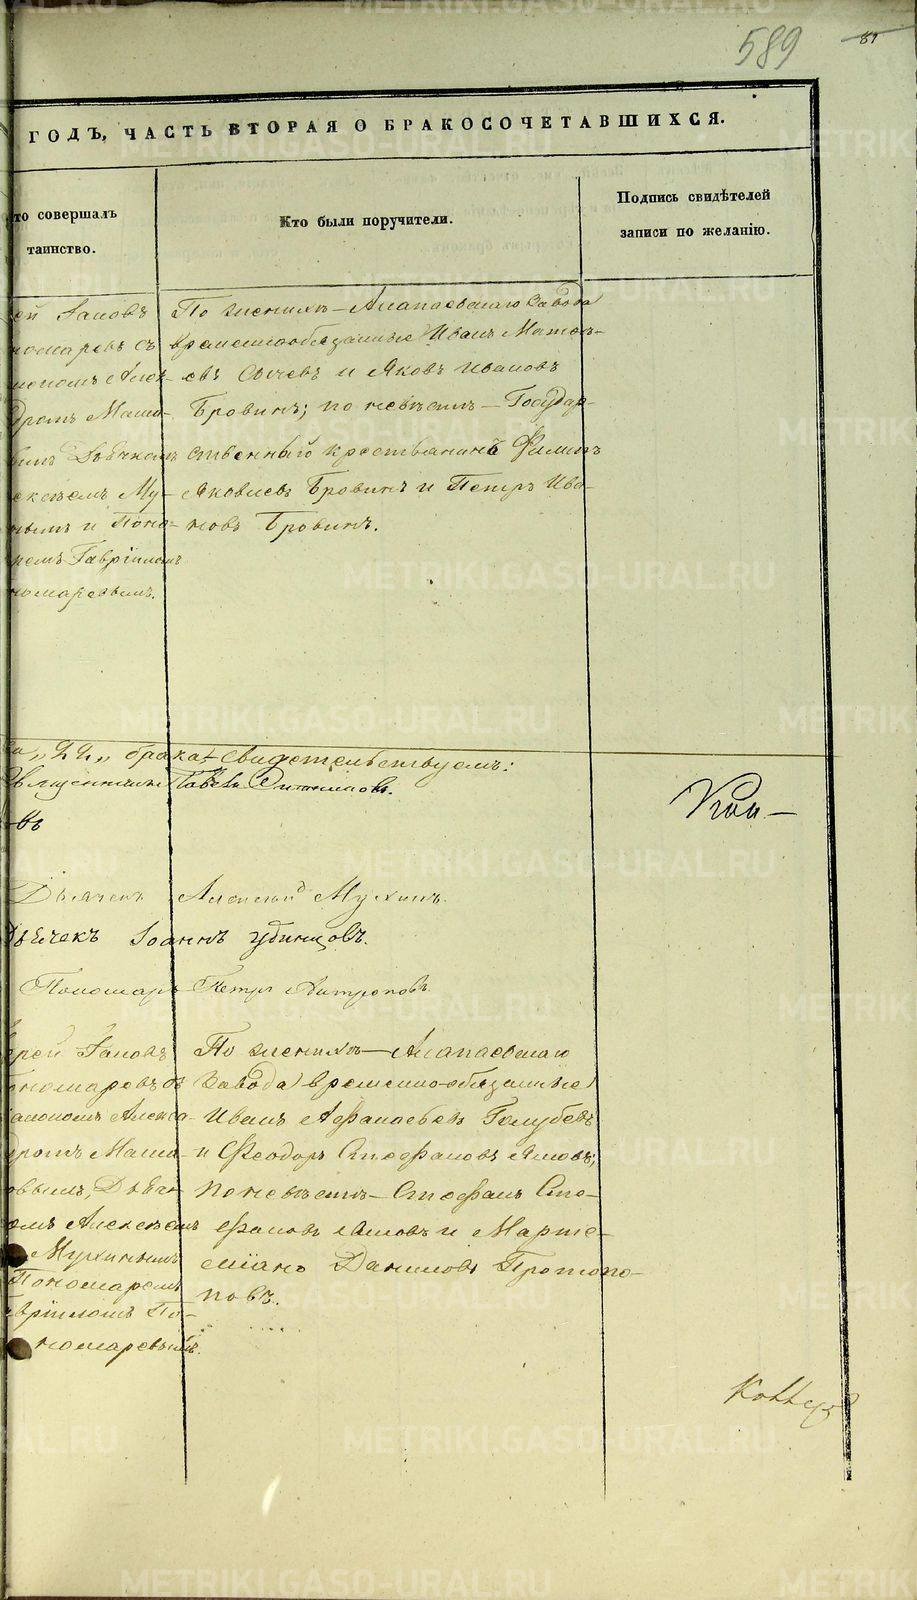 589
81
ГОДЪ, ЧАСТЬ ВТОРАЯ О БРАКОСОЧЕТАВШИХСЯ.
то совершалъ
таинство.
Кто были поручители.
Подпись свидѣтелей
записи по желанію.
ей Іаковъ
номаревъ съ
Алек-
дромъ Маши-
Дьячкомъ
ексѣемъ Му-
нымъ и Поно-
ремъ Гавріиломъ
номаревымъ.
По женихѣ – Алапаевскаго завода
временнообязанные Иванъ Матве-
евъ Сычевъ и Яковъ Ивановъ
Бровинъ; по невѣстѣ – Государ-
ственный крестьянинъ Филипъ
Яковлевъ Бровинъ и Петръ Ива-
новъ Бровинъ.
брака свидетельствуемъ:
Священникъ Павелъ
въ
Дьячекъ Алексѣй Мухинъ.
Дьячекъ Іоаннъ Удинцовъ.
Пономарь Петръ Антроповъ.
ерей Іаковъ
ономаревъ съ
Алекса-
дромъ Маши-
овымъ, Дьячк-
омъ Алексѣемъ
Мухинымъ
Пономаремъ
авріиломъ По-
номаревымъ.
По женихѣ – Алапаевскаго
завода временно-обязанные
Иванъ Афанасьевъ Голубевъ
и Феодоръ Стефановъ Ямовъ;
по невѣстѣ – Стефанъ Сте-
фановъ Ямовъ и Марте-
міанъ Даниловъ Протопо-
повъ.
METRIKI.GASO-URAL.RU